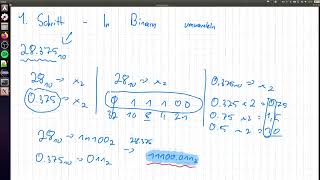 1. Schritt - In Binär umwandeln
28.375₁₀
28₁₀ → x₂
0.375 → x₂
28₁₀ → x₂
0 1 1 1 0 0
32 16 8 4 2 1
0.375₁₀ → x₂
0.375 × 2 = 0,75
0.75 × 2 = 1,5
0.5 × 2 = 1,0
28₁₀ → 11100₂
0.375₁₀ → 011₂
28.375
→ 11100.011₂